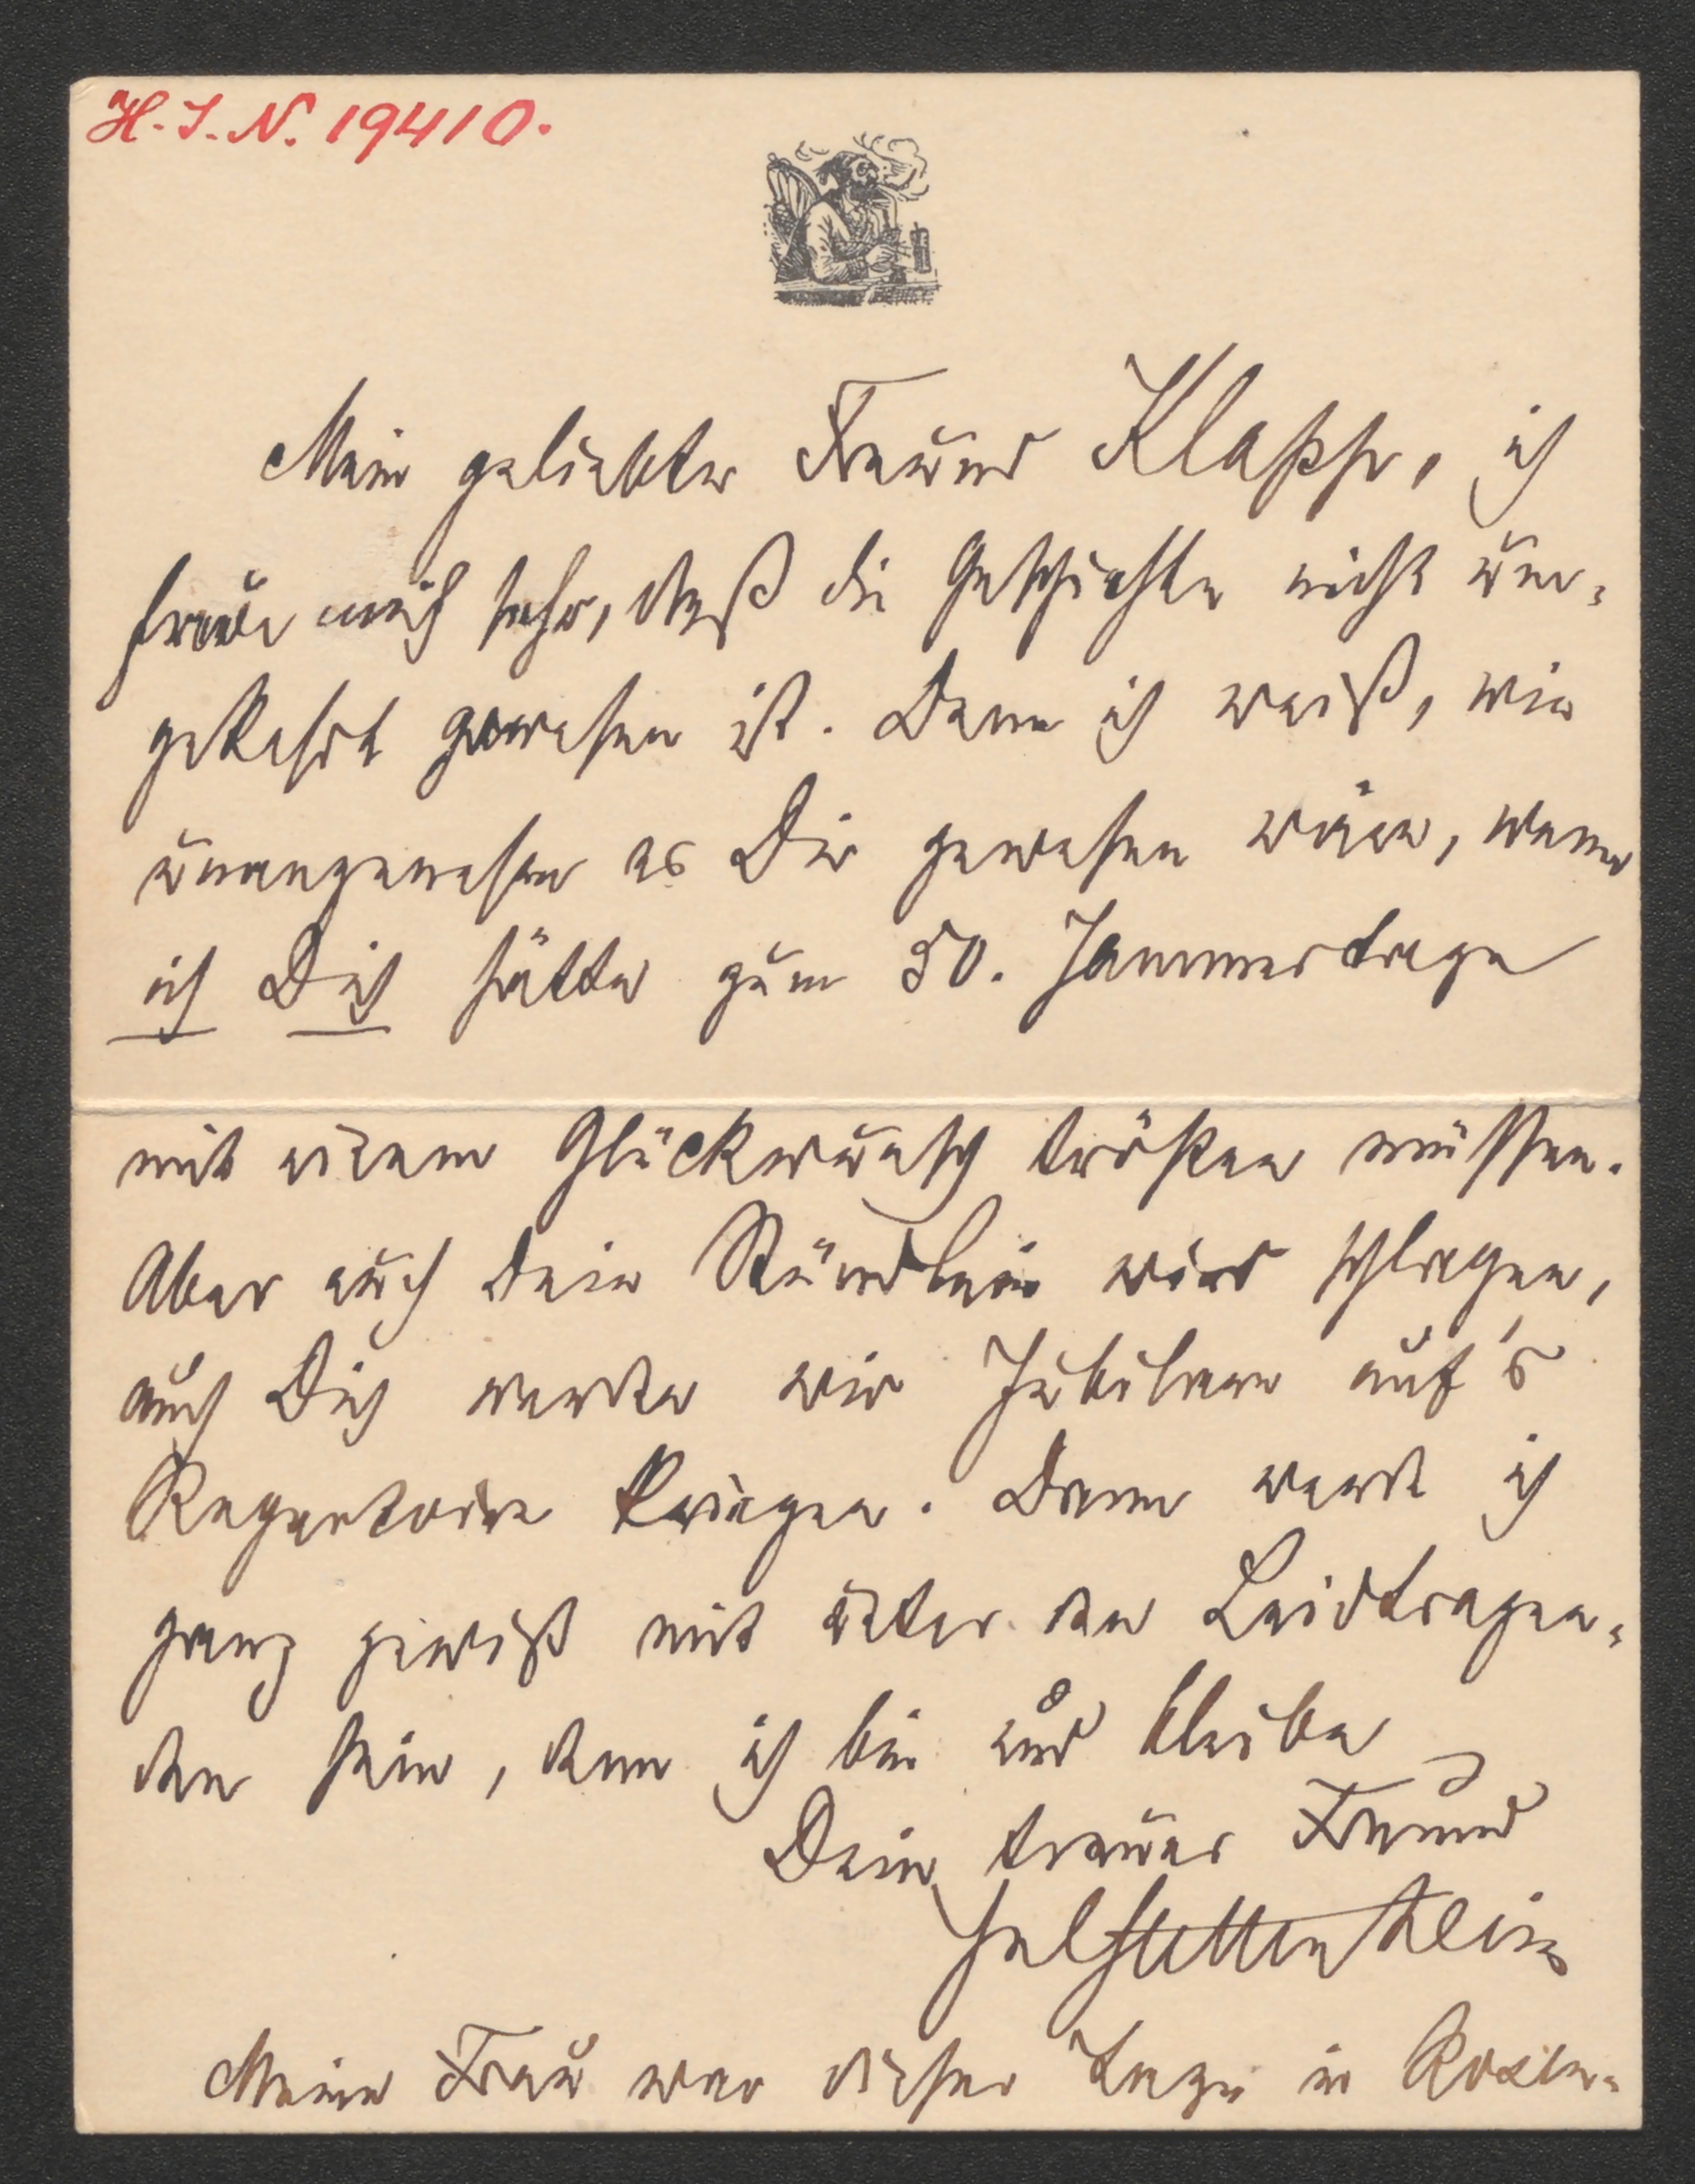 H.I.N. 19410.
Mein geliebter Freund Klapp, ich
freue mich sehr, daß die Geschichte nicht um-
gekehrt gewesen ist. Denn ich weiß, wie
unangenehm es Dir gewesen wäre, wenn
ich Dich hätte zum 50. Jammertage
mit einem Glückwunsch trösten müssen.
Aber auch Dein Stündlein wird schlagen,
auch Dich werden wir Jubilare auf's
Repertoire kriegen. Dann werde ich
ganz gewiß mit unter den Leidtragen-
den sein, denn ich bin und bleibe
Dein treuer Freund
Meine Frau war dieser Tage in